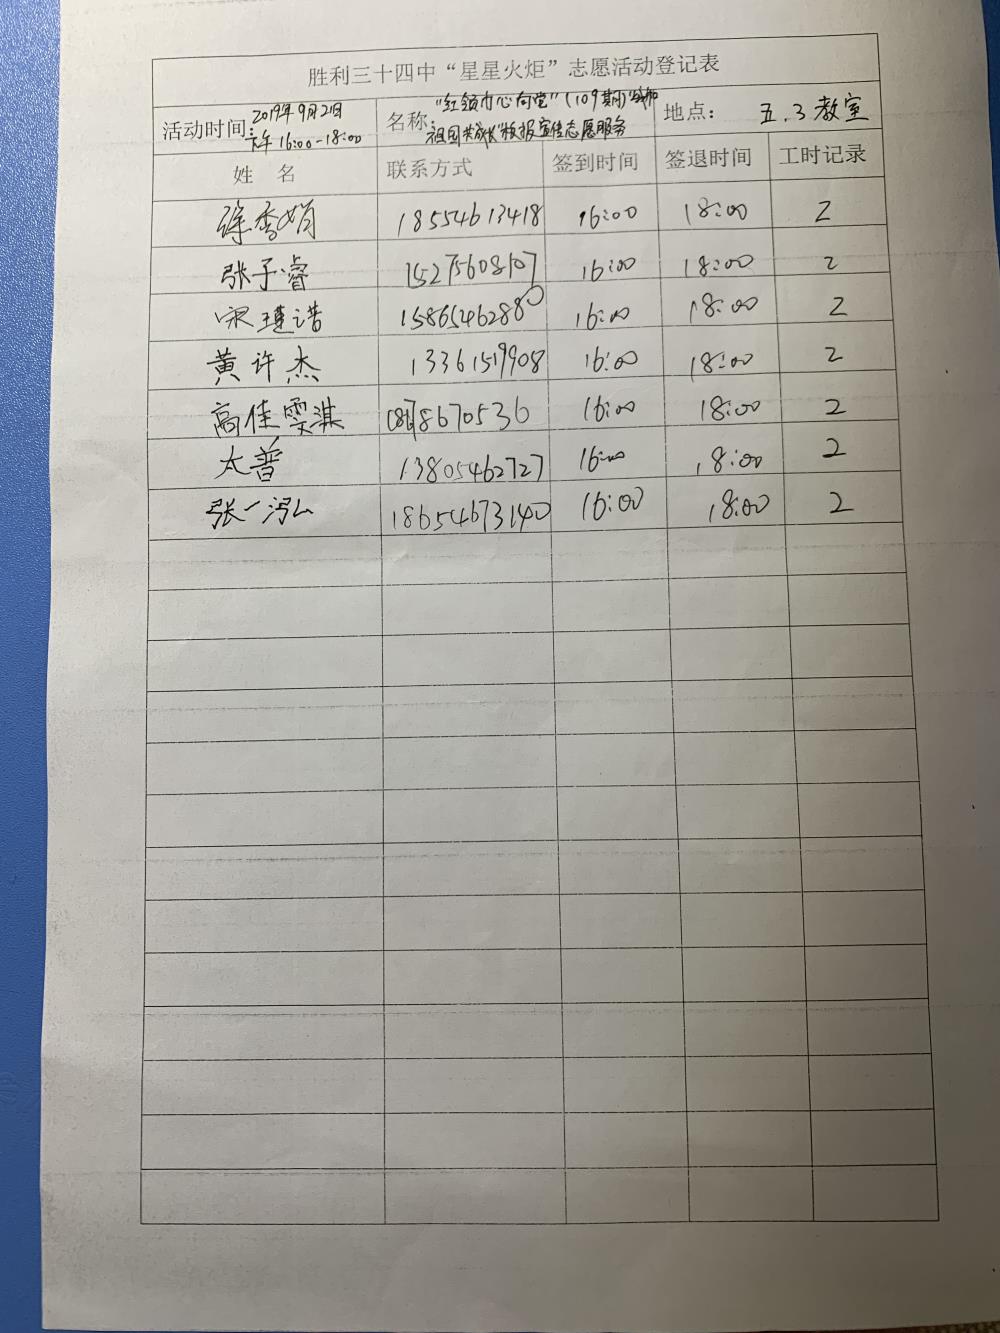 胜利三十四中“星星火炬”志愿活动登记表
活动时间: 2019年9月21日 下午16:00-18:00
名称: "红领巾心向党"(109期)"我和祖国共成长"板报宣传志愿服务
地点: 五.3教室
姓 名 联系方式 签到时间 签退时间 工时记录
徐秀娟 18554613418 16:00 18:00 2
张子睿 15275608107 16:00 18:00 2
宋 诺 15865462880 16:00 18:00 2
黄许杰 13361519908 16:00 18:00 2
高佳雯淇 18678670536 16:00 18:00 2
太普 13805462727 16:00 18:00 2
张一泓 18654673140 16:00 18:00 2